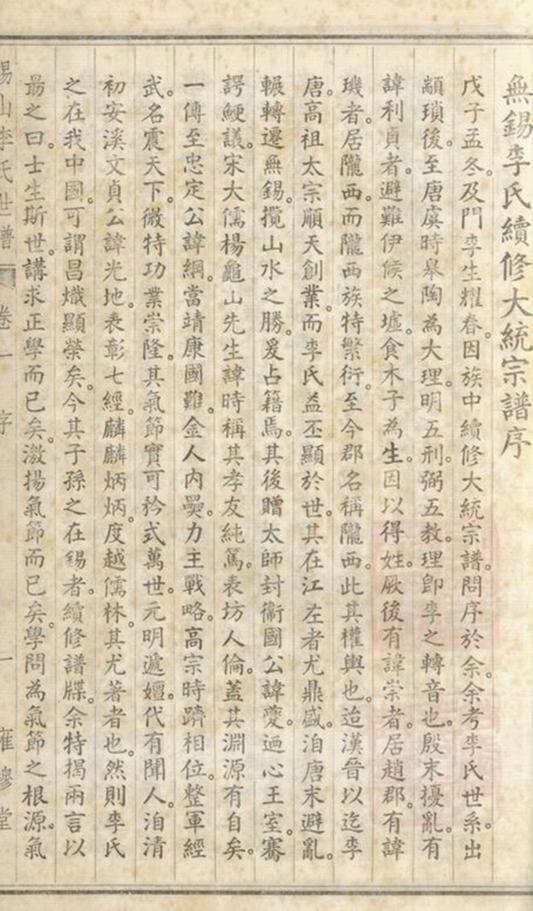 無錫李氏續修大統宗譜序
戊子孟冬。及門李生燿春。因族中續修大統宗譜。問序於余。余考李氏世系。出
顓頊後。至唐虞時皋陶為大理。明五刑。弼五教。理即李之轉音也。殷末擾亂。有
諱利貞者。避難伊候之墟。食木子為生。因以得姓。厥後有諱崇者。居趙郡。有諱
璣者。居隴西。而隴西族特繁衍。至今郡名稱隴西。此其權輿也。迨漢晉以迄李
唐。高祖太宗順天創業。而李氏益丕顯於世。其在江左者尤鼎盛。洎唐末避亂。
輾轉遷無錫。攬山水之勝。爰占籍焉。其後贈太師封衞國公諱夔。迺心王室。審
諤鯁議。宋大儒楊龜山先生諱時稱其孝友純篤。表坊人倫。蓋其淵源有自矣。
一傳至忠定公諱綱。當靖康國難。金人內奰。力主戰略。高宗時躋相位。整軍經
武。名震天下。微特功業崇隆。其氣節實可矜式萬世。元明遞嬗。代有聞人。洎清
初安溪文貞公諱光地。表彰七經。麟麟炳炳。度越儒林。其尤著者也。然則李氏
之在我中國。可謂昌熾顯榮矣。今其子孫之在錫者。續修譜牒。余特揭兩言以
最之曰。士生斯世。講求正學而已矣。激揚氣節而已矣。學問為氣節之根源。氣
錫山李氏世譜 卷一 序 一 雍穆堂